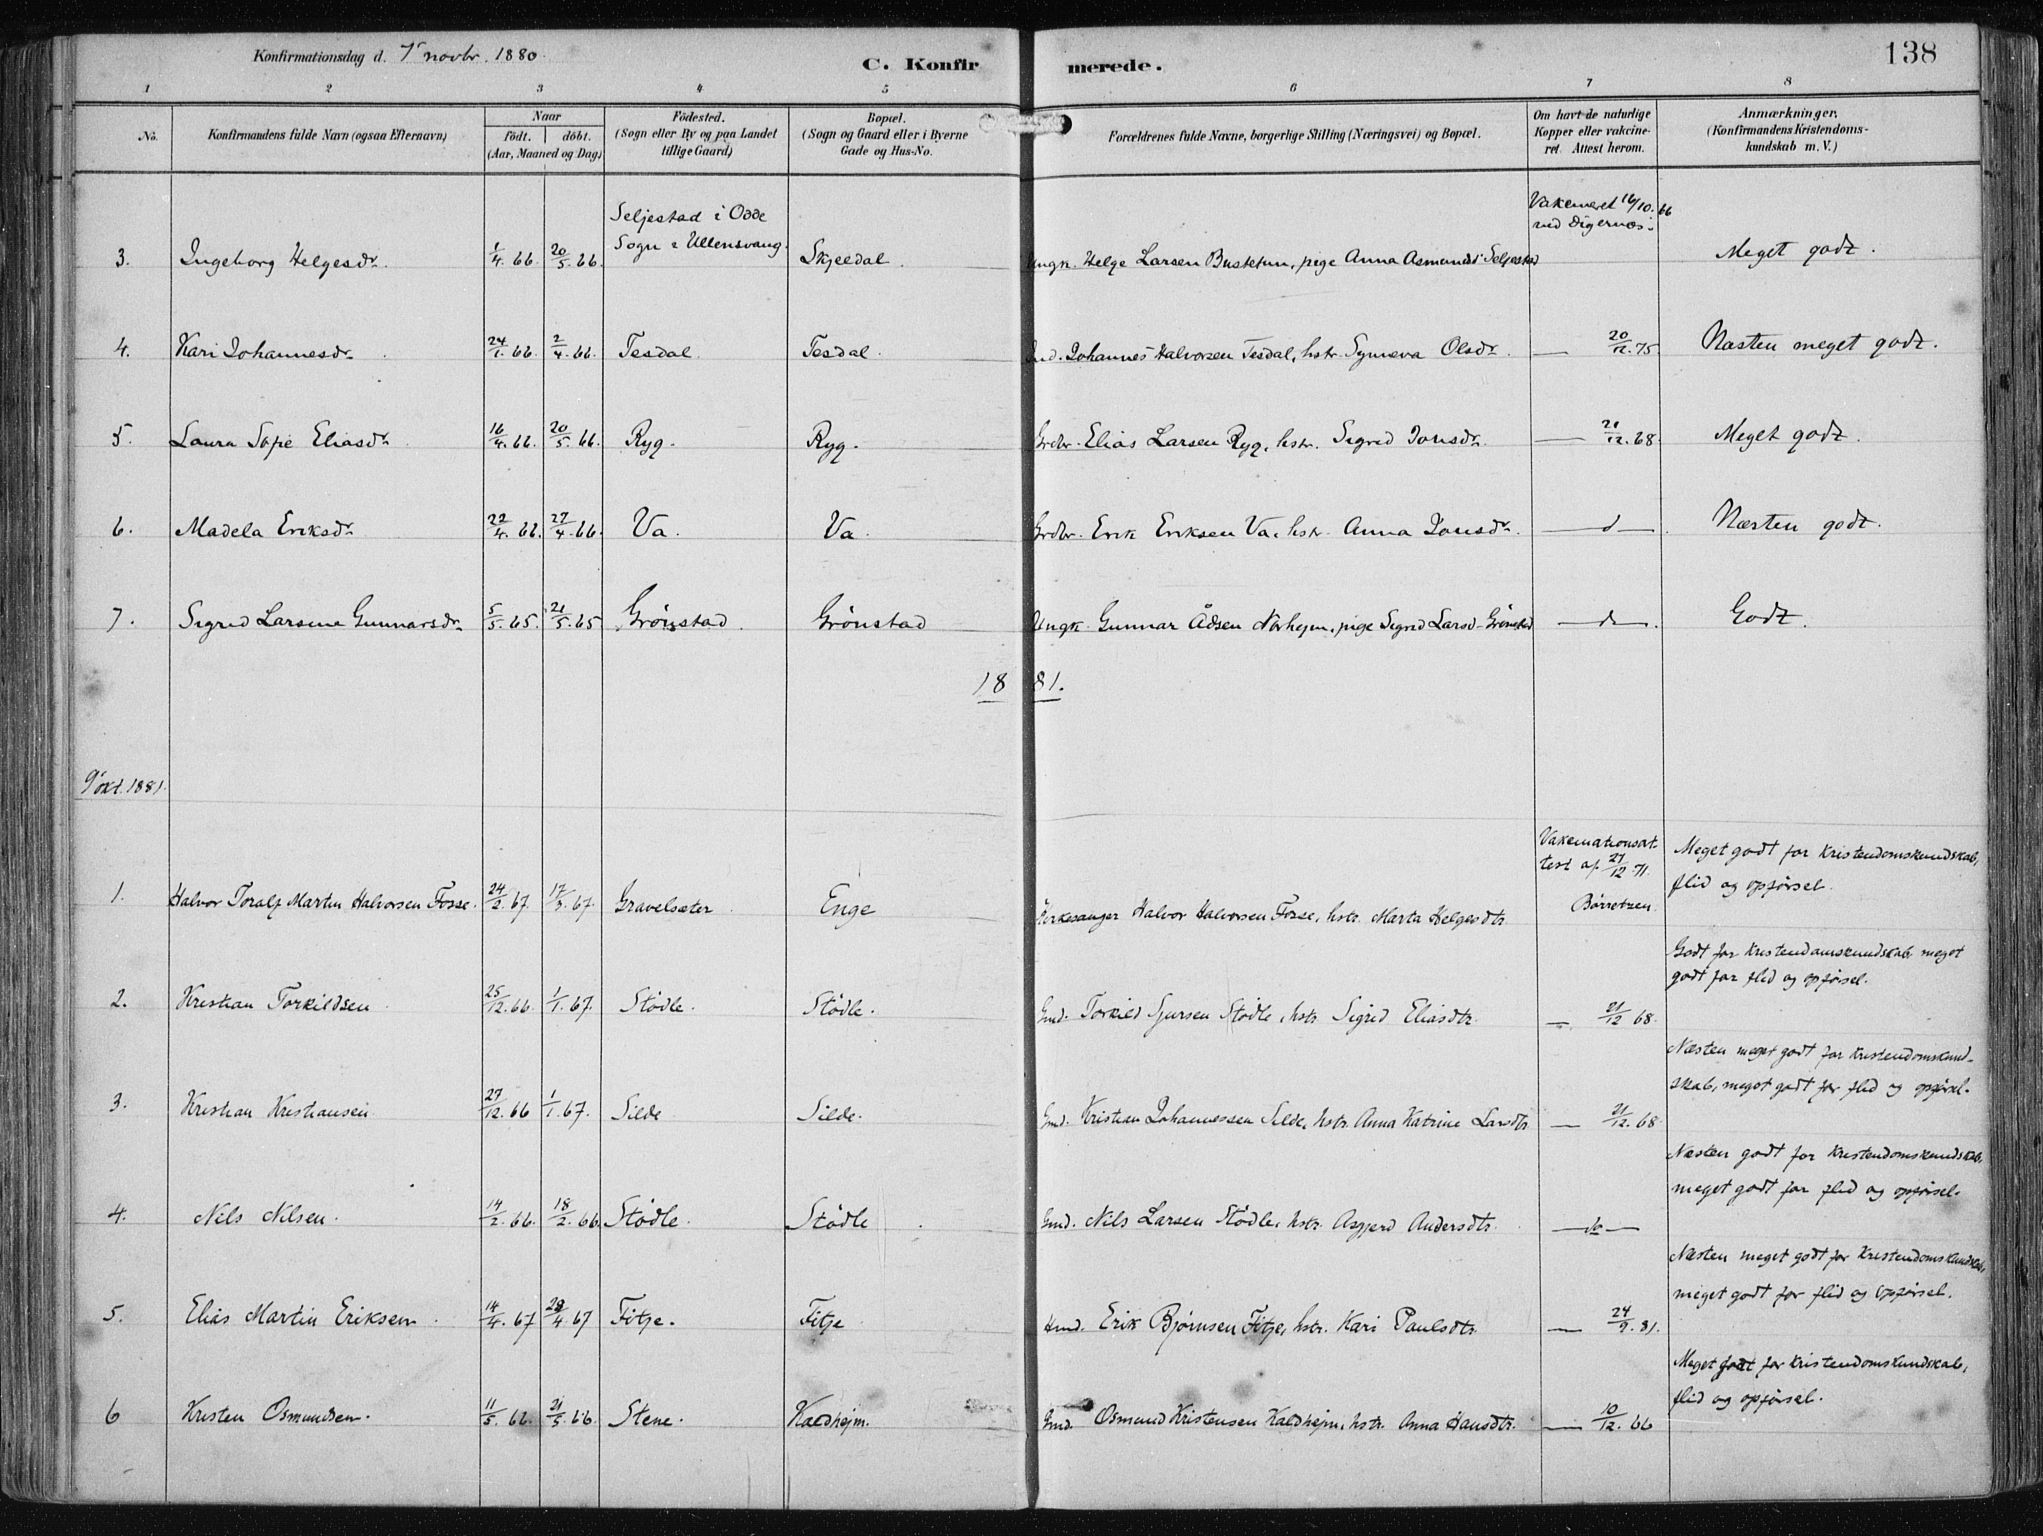 Konfirmationsdag d. 7' novbr. 1880.
C. Konfirmerede.
138
1 2 3 4 5 6 7 8
No.
Konfirmandens fulde Navn (ogsaa Efternavn)
Naar
födt. döbt.
(Aar, Maaned og Dag.)
Födested.
(Sogn eller By og paa Landet
tillige Gaard)
Bopæl.
(Sogn og Gaard eller i Byerne
Gade og Hus-No.
Forældrenes fulde Navne, borgerlige Stilling (Næringsvei) og Bopæl.
Om havt de naturlige
Kopper eller vakcine-
ret. Attest herom.
Anmærkninger.
(Konfirmandens Kristendoms-
kundskab m. V.)
Seljestad i Odde
Sogn i Ullensvang.
Vakcineret 16/10. 66
ved Digernæs.
3. Ingeborg Helgesdr. 1/4. 66. 20/5. 66. Skjeldal. Ungk. Helge Larsen Busketun, pige Anna Asmundsd. Seljestad Meget godt.
4. Kari Johannesdr. 24/1. 66. 2/4. 66. Tesdal. Tesdal. Ind. Johannes Halvorsen Tesdal, hstr. Synneva Olsdr. — 20/12. 75. Næsten meget godt.
5. Laura Sofie Eliasdr. 16/4. 66. 20/5. 66. Ryg. Ryg. Grdbr. Elias Larsen Ryg, hstr. Sigrid Jonsdr. — 21/12. 68. Meget godt.
6. Madela Eriksdr. 22/4. 66. 27/4. 66. Va. Va. Grdbr. Erik Eriksen Va, hstr. Anna Jonsdr. —d— Næsten godt.
7. Sigrid Larsine Gunnarsdr. 5/5. 65. 21/5. 65 Grönstad. Grönstad Ungk. Gunnar Ådsen Norhejm, pige Sigrid Larsd. Grönstad —d— Godt.
1881.
9' okt. 1881.
Vakcinationsat-
test af 27/12 71.
Börretzen
Meget godt for Kristendomskundskab,
flid og opførsel.
1. Halvor Toralf Martin Halvorsen Fosse. 24/2. 67. 17/3. 67. Gravelsæter Enge Kirkesanger Halvor Halvorsen Fosse, hstr. Marta Helgesdtr.
Godt for Kristendomskundskab, meget
godt for flid og opførsel.
2. Kristian Torkildsen 25/12. 66. 1/1. 67. Stödle. Stödle. Gmd. Torkild Sjursen Stödle, hstr. Sigrid Eliasdtr. — 21/12 68.
Næsten meget godt for Kristendomskund-
skab, meget godt for flid og opførsel.
3. Kristian Kristiansen 27/12. 66 1/1. 67. Silde Silde. Gmd. Kristian Johannessen Silde, hstr. Anna Katrine Larsdtr. — 21/12. 68.
Næsten godt for Kristendomskundskab,
meget godt for flid og opførsel.
4. Nils Nilsen. 14/2. 66. 18/2. 66. Stödle. Stödle Gmd. Nils Larsen Stödle, hstr. Asgjerd Andersdtr. —do—
Næsten meget godt for Kristendomskundskab,
meget godt for flid og opførsel.
5. Elias Martin Eriksen. 14/4. 67 28/4 67 Fitje. Fitje Hmd. Erik Bjørnsen Fitje, hstr. Kari Paulsdtr. — 24/9. 81.
Meget godt for Kristendomskundskab,
flid og opførsel.
6 Kristen Osmundsen. 11/5. 66. 21/5. 66 Stene. Kaldhejm. Gmd. Osmund Kristensen Kaldhejm, hstr. Anna Hansdtr. — 10/12. 66